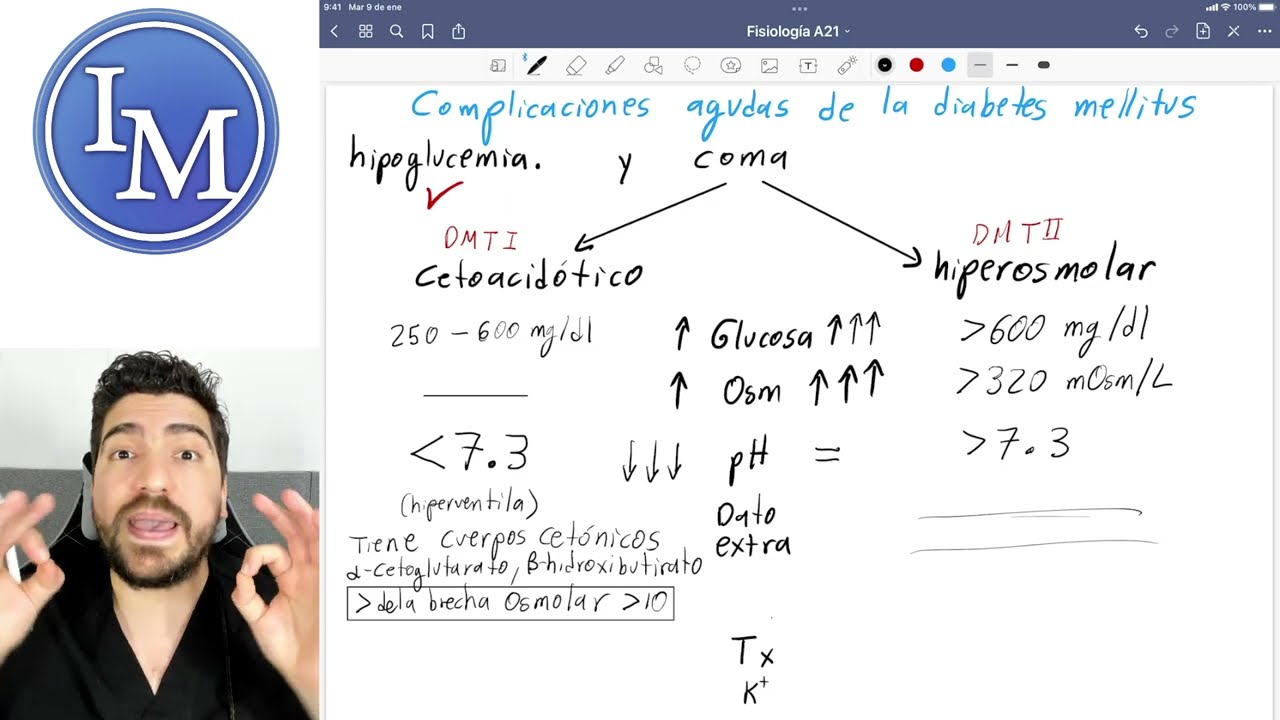 IM
9:41 Mar 9 de ene
100%
Fisiología A21
Complicaciones agudas de la diabetes mellitus
hipoglucemia. y coma
DMTI
DMTII
cetoacidótico
hiperosmolar
250 – 600 mg/dl ↑ Glucosa ↑↑↑ >600 mg/dl
↑ Osm ↑↑↑ >320 mOsm/L
<7.3 ↓↓↓ pH = >7.3
(hiperventila)
Dato
extra
Tiene cuerpos cetónicos
α-cetoglutarato, β-hidroxibutirato
> de la brecha Osmolar >10
Tx
K+